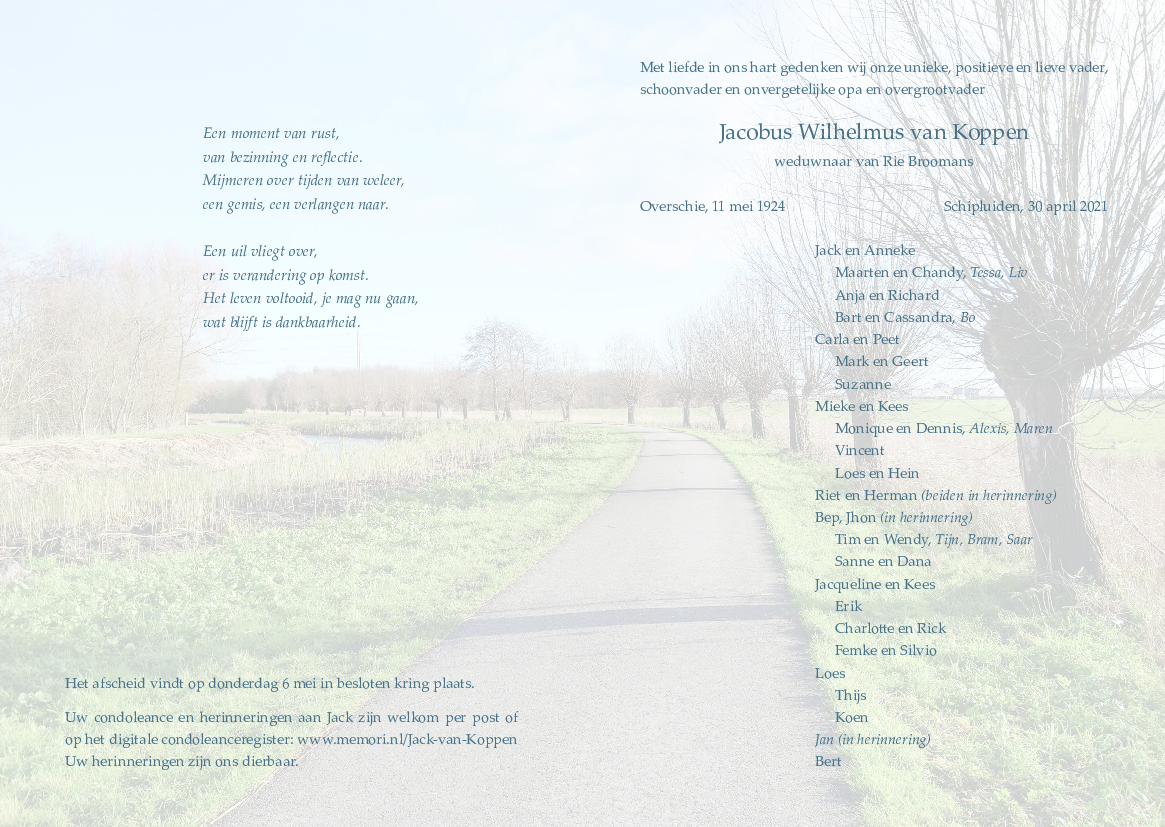 Een moment van rust,
van bezinning en reflectie.
Mijmeren over tijden van weleer,
een gemis, een verlangen naar.
Een uil vliegt over,
er is verandering op komst.
Het leven voltooid, je mag nu gaan,
wat blijft is dankbaarheid.
Het afscheid vindt op donderdag 6 mei in besloten kring plaats.
Uw condoleance en herinneringen aan Jack zijn welkom per post of
op het digitale condoleanceregister: www.memori.nl/Jack-van-Koppen
Uw herinneringen zijn ons dierbaar.
Met liefde in ons hart gedenken wij onze unieke, positieve en lieve vader,
schoonvader en onvergetelijke opa en overgrootvader
Jacobus Wilhelmus van Koppen
weduwnaar van Rie Broomans
Overschie, 11 mei 1924 Schipluiden, 30 april 2021
Jack en Anneke
Maarten en Chandy, Tessa, Liv
Anja en Richard
Bart en Cassandra, Bo
Carla en Peet
Mark en Geert
Suzanne
Mieke en Kees
Monique en Dennis, Alexis, Maren
Vincent
Loes en Hein
Riet en Herman (beiden in herinnering)
Bep, Jhon (in herinnering)
Tim en Wendy, Tijn, Bram, Saar
Sanne en Dana
Jacqueline en Kees
Erik
Charlotte en Rick
Femke en Silvio
Loes
Thijs
Koen
Jan (in herinnering)
Bert